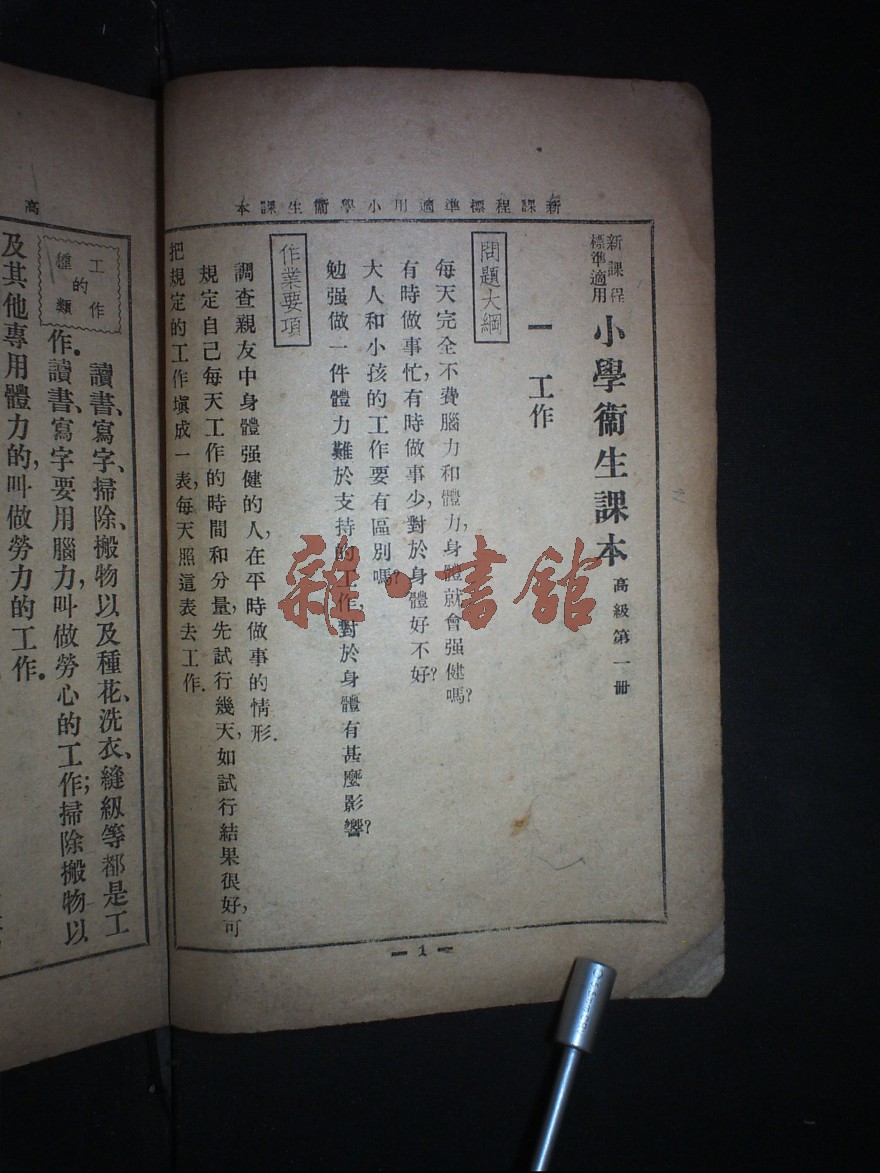 新課程標準適用小學衞生課本
新課程
標準適用
小學衞生課本 高級第一册
一 工作
問題大綱
每天完全不費腦力和體力,身體就會强健嗎?
有時做事忙,有時做事少,對於身體好不好?
大人和小孩的工作要有區別嗎?
勉强做一件體力難於支持的工作,對於身體有甚麼影響?
作業要項
調查親友中身體强健的人,在平時做事的情形.
規定自己每天工作的時間和分量,先試行幾天,如試行結果很好,可
把規定的工作塡成一表每天照這表去工作.
— 1 —
高
工作
的
種類
讀書、寫字、掃除、搬物以及種花、洗衣、縫級等都是工
作.讀書、寫字要用腦力,叫做勞心的工作;掃除搬物以
及其他專用體力的,叫做勞力的工作.
雜·書館